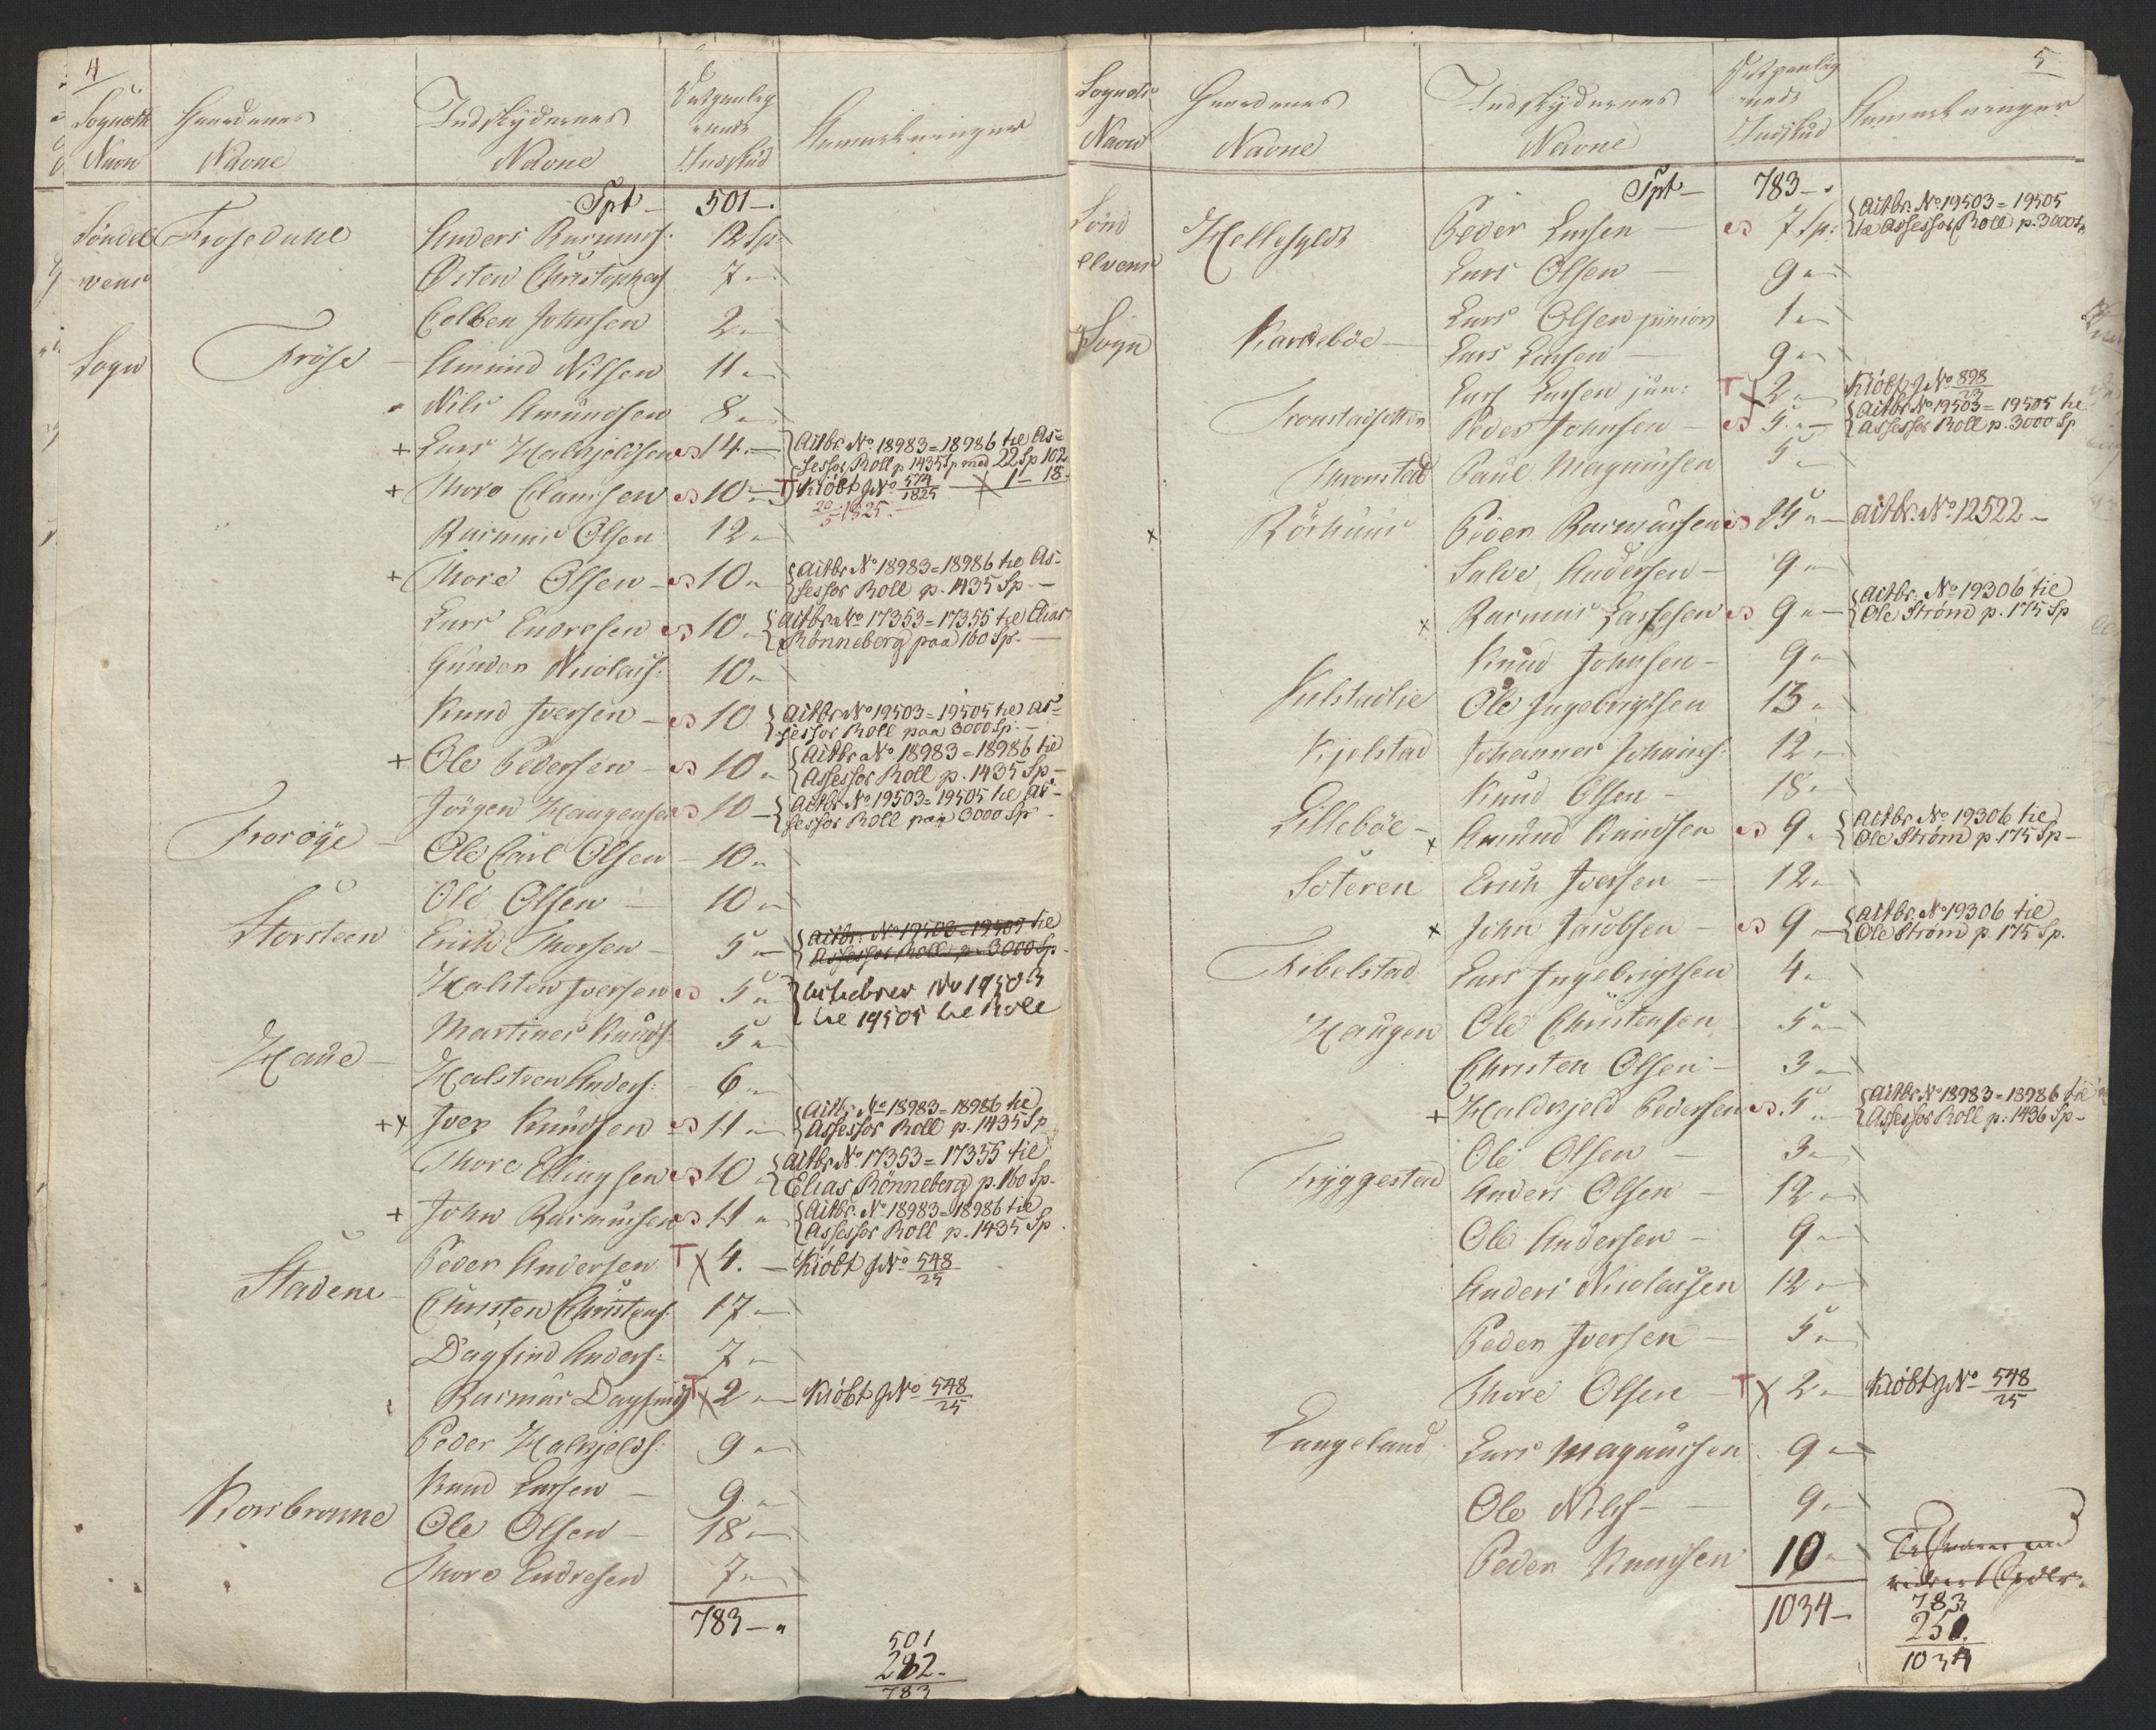 4
Sognets Navn
Gaardenes Navne
Indskydernes Navne
Indskud
Anmerkninger
Spt — 501 —
Søndel vens Sogn
Frosedahl Anders Rasmuss: 12 Sp:
Østen Christophers 7 —
Colben Johnsen 2 —
Frøise — Amund Nilsen 11 —
Nils Amundsen 8 —
+ Lars Halkjeldsen 14 — Actbr. No 18983 = 18986 til As=
sessor Roll p 1435 Sp med 22 Sp 102
+ Thore Clausen 10 — T Kiöbt J No 574/1825 — X 1 — 18
20/5 1825.
Rasmus Olsen 12 —
+ Thore Olsen — 10 — Actbr No 18983 = 18986 til As-
sessor Roll p. 1435 Sp —
Lars Endresen 10 — Actbr No 17353 = 17355 til Elias
Rönneberg paa 160 Sp. —
Gunder Nicolais: 10 —
Knud Iversen — 10 Actbr No 19503 = 19505 til as=
sessor Roll paa 3000 Sp: —
+ Ole Pedersen — 10 — Actbr No 18983 = 18986 til
Assessor Roll p. 1435 Sp —
Jörgen Haugensen 10 — Actbr No 19503 = 19505 til as-
sessor Roll paa 3000 Sp —
Frosöye — Ole Carl Olsen — 10 —
Ole Olsen — 10 —
Storsteen Erich Thorsen — 5 — Actbr: No 19503 = 19505 til
Assessor Roll p. 3000 Sp.
Halsten Iversen 5 — Actiebrev No 19503
til 19505 til Role
Martines Knuds: 5 —
Haue — Halsteen Anders: — 6 —
+x Iver Knudsen — 11 — Actbr No 18983 = 18986 til
Assessor Roll p. 1435 Sp
Thore Ellingsen 10 Actbr No 17353 = 17355 til
Elias Rönneberg p. 160 Sp.
+ John Rasmussen 11 — Actbr. No 18983 = 18986 til
Assessor Roll p. 1435 Sp
Peder Andersen T X 4. — Kiöbt J No 548/25
Stadene — Christen Christens: 17 —
Dagfind Anders: 7 —
Rasmus Dagfinds T X 2 — Kiöbt J No 548/25
Peder Halkjelds: 9 —
Knud Larsen — 9 —
Korsbrønne Ole Olsen — 18 —
Thore Endresen 7 —
783 —
501
282.
783
5
Sognets Navn
Gaardenes Navne
Indskydernes Navne
Indskud
Anmerkninger
Spt — 783 —
Sønd elvens Sogn
Hellesyldt Peder Larsen — 7 Sp: Actbr. No 19503 = 19505
til Assessor Roll p. 3000 Sp
Lars Olsen — 9 —
Lars Olsen junior 1 —
Karlebøe — Lars Larsen — 9 —
Lars Larsen jun: T X 2 — Kiöbt J No 898/23
Tronstadsetter Peder Johnsen — 5 — Actbr No 19503 = 19505 til
Assessor Roll p. 3000 Sp
Thronstad Paul Magnussen 5 —
x Rörhuus Peder Rasmussen 25 — Actbr. No 12522 —
Salve Andersen — 9 —
x Rasmus Lassesen 9 — Actbr. No 19306 til
Ole Ström p. 175 Sp
Knud Johnsen — 9 —
Kilstadlie Ole Ingebrigtsen 13 —
Kjelstad Johannes Johanes: 12 —
Knud Olsen — 18 —
Lillebøe — x Amund Knudsen 9 — Actbr No 19306 til
Ole Ström p. 175 Sp —
Soteren Erich Iversen — 12 —
x John Jacobsen — 9 — Actbr. No 19306 til
Ole Ström p. 175 Sp.
Fibelstad Lars Ingebrigtsen 4 —
Haugen Ole Christensen 5 —
Christen Olsen — 3 —
+ Haldkjeld Pedersen 5 — Actbr No 18983 = 18986 til
Assessor Roll p: 1436 Sp —
Ole Olsen — 3 —
Tryggestad Anders Olsen — 12 —
Ole Andersen — 9 —
Anders Nicolaisen 12 —
Peder Iversen — 5 —
Thore Olsen — T X 2 — Kiöbt J No 548/25
Langeland Lars Magnussen 9 —
Ole Nils — 9 —
Peder Knudsen 10 —
1034 —
783
251.
1034